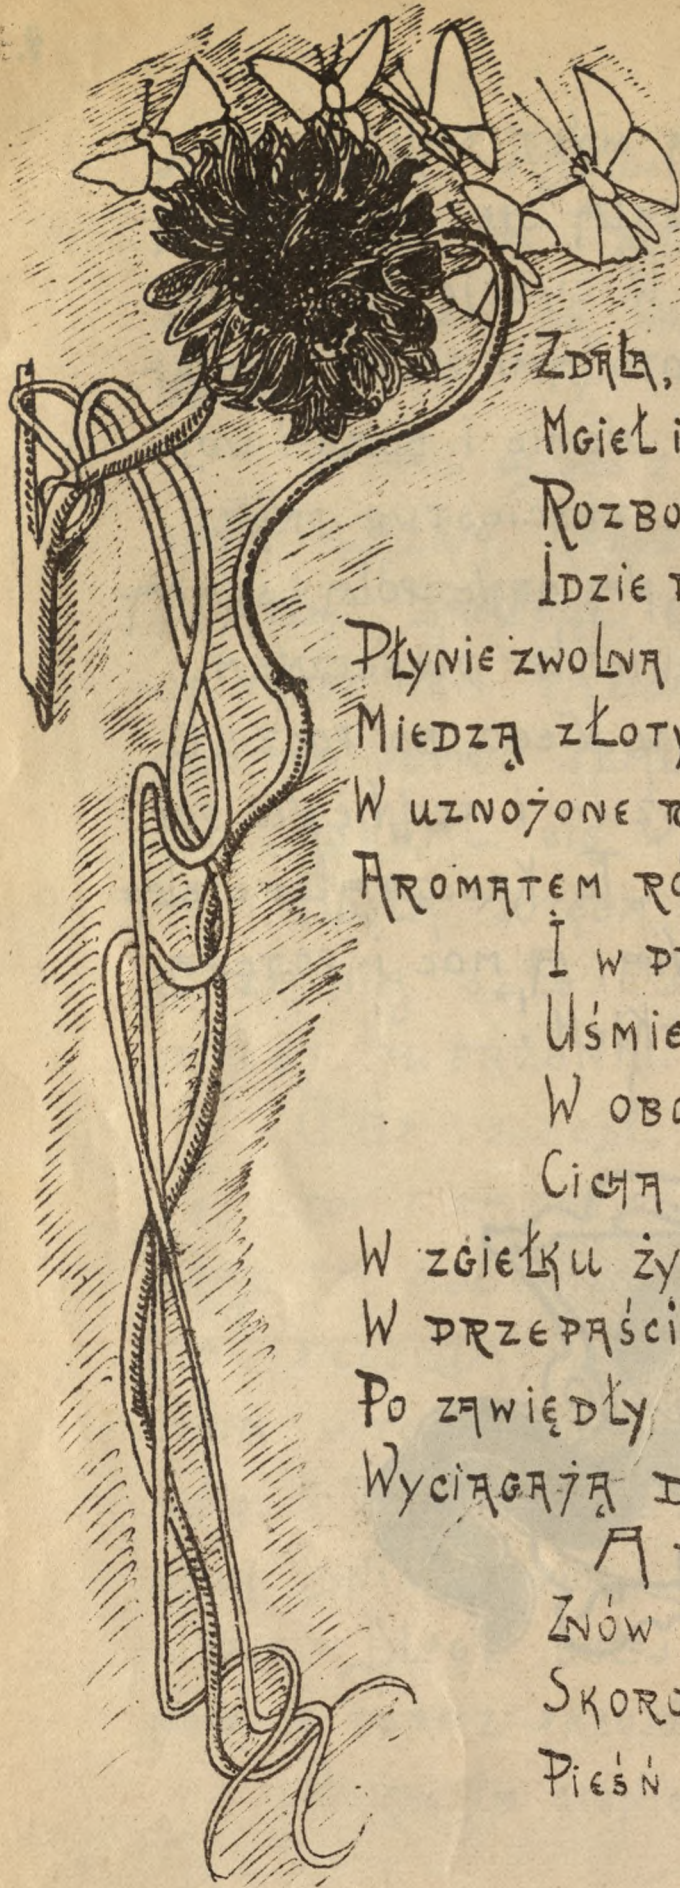 Zdała,
Mgieł i
Rozbo
Idzie
Płynie zwolna
Miedzą złoty
W uznojone
Aromatem ro
I w
Uśmie
W obo
Cicha
W zgiełku ży
W przepaści
Po zawiędły
Wyciągają
A
Znów
Skoro
Pieśń